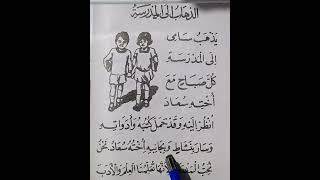 الذهاب إلى المدرسة
يَذْهَبُ سَامِي
إِلَى الْمَدْرَسَةِ
كُلَّ صَبَاحٍ مَعَ
أُخْتِهِ سُعَادَ
أُنْظُرْ إِلَيْهِ وَقَدْ حَمَلَ كُتُبَهُ وَأَدَوَاتِهِ
وَسَارَ بِنَشَاطٍ وَبِجَانِبِهِ أُخْتُهُ سُعَادُ نَحْنُ
نُحِبُّ الْمَدْرَسَةَ لِأَنَّهَا تُعَلِّمُنَا الْعِلْمَ وَالْأَدَبَ